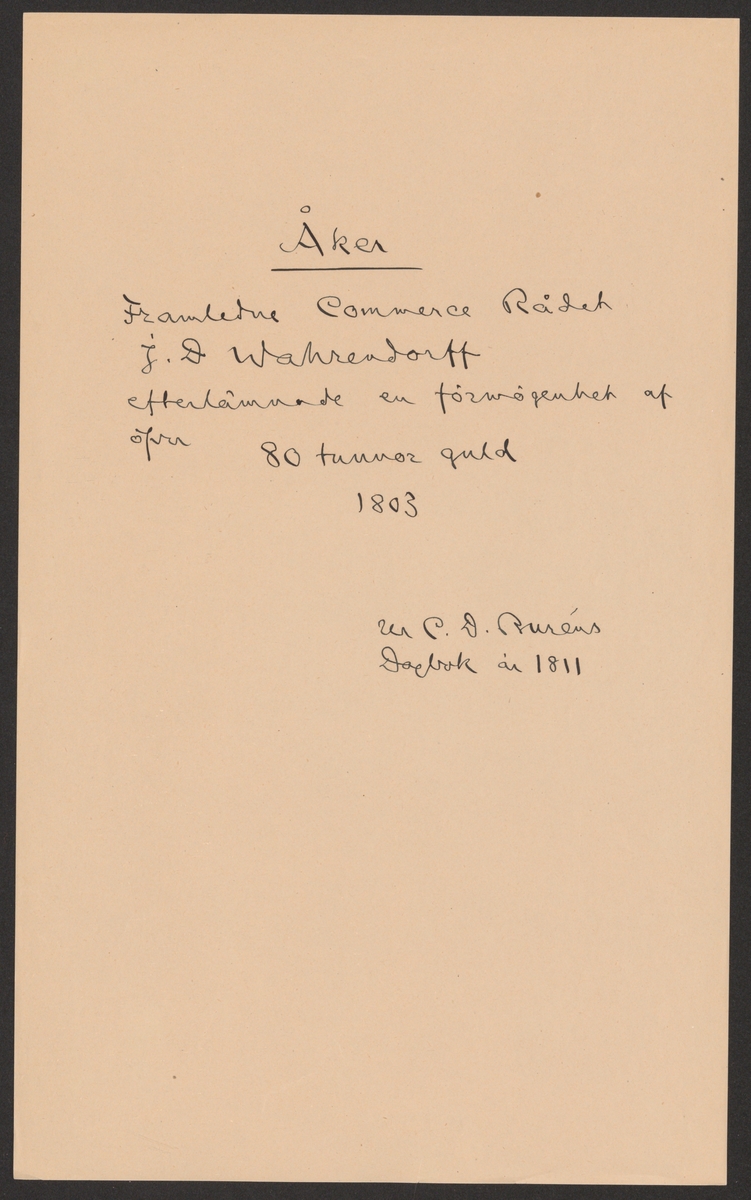 Åker
Framledne Commerce Rådet
J. D Wahrendorff
efterlämnade en förmögenhet af
öfver 80 tunnor guld
1803
Ur C. D. Buréns
Dagbok år 1811